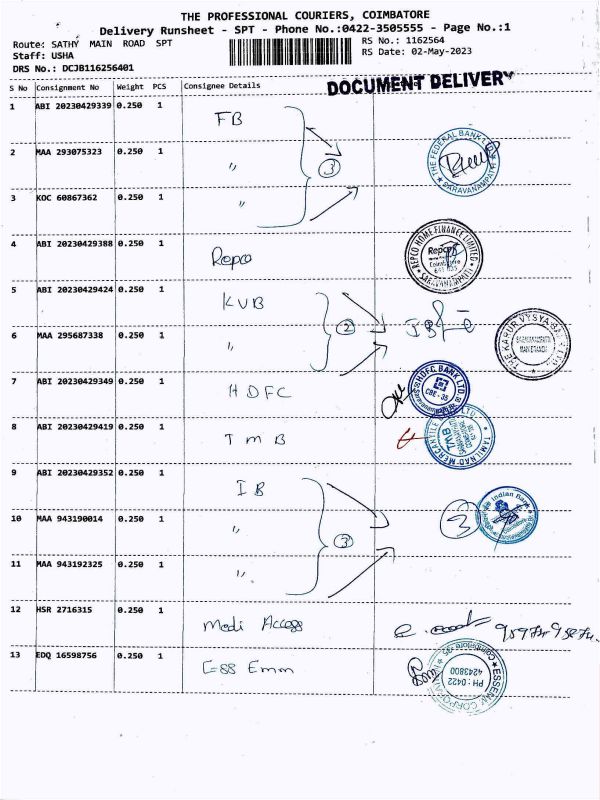 THE PROFESSIONAL COURIERS, COIMBATORE
Delivery Runsheet - SPT - Phone No.:0422-3505555 - Page No.:1
Route: SATHY MAIN ROAD SPT
RS No.: 1162564
Staff: USHA
RS Date: 02-May-2023
DRS No.: DCJB116256401
DOCUMENT DELIVERY
S No Consignment No Weight PCS Consignee Details
1 ABI 20230429339 0.250 1 FB
2 MAA 293075323 0.250 1 " 3
THE FEDERAL BANK LTD. SARAVANAMPATTI
3 KOC 60867362 0.250 1 "
4 ABI 20230429388 0.250 1 Repco
REPCO HOME FINANCE LIMITED Repco Coimbatore 641 035 SARAVANAMPATTI
5 ABI 20230429424 0.250 1 KVB
6 MAA 295687338 0.250 1 " 2
THE KARUR VYSYA BANK LTD. SARAVANAMPATTI MAIN BRANCH
7 ABI 20230429349 0.250 1 HDFC
HDFC BANK LTD. CBE - 35
8 ABI 20230429419 0.250 1 TMB
TAMILNAD MERCANTILE BANK LTD. TMB
9 ABI 20230429352 0.250 1 IB
10 MAA 943190014 0.250 1 " 3
3 Indian Bank
11 MAA 943192325 0.250 1 "
12 HSR 2716315 0.250 1 Modi Access
13 EDQ 16598756 0.250 1 Ess Emm
ESSEMM CORPORATION Coimbatore - 35 PH : 0422 4243800